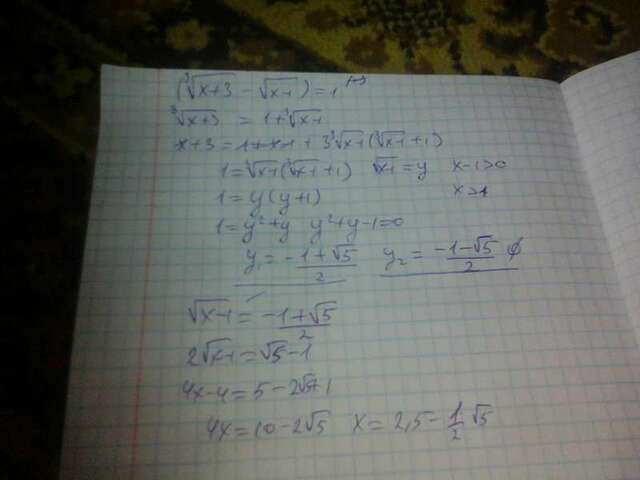 (³√x+3 − √x-1) = 1
³√x+3 = 1+³√x-1
x+3 = 1+x-1 + 3³√x-1(³√x-1+1)
1=³√x-1(³√x-1+1) √x-1=y x-1>0
1=y(y+1) x>1
1=y²+y y²+y-1=0
y₁= -1+√5/2 y₂= -1-√5/2 ∅
√x-1= -1+√5/2
2√x-1=√5-1
4x-4=5-2√5+1
4x=10-2√5 x=2,5-1/2√5